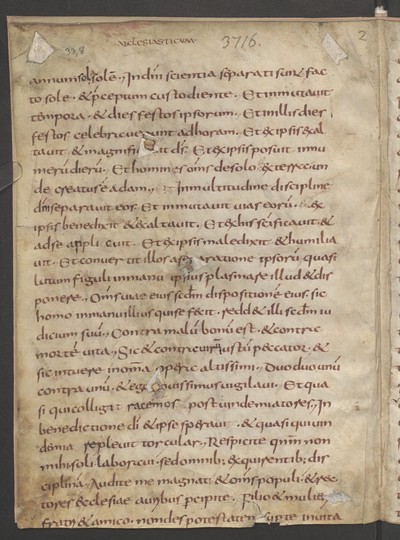 3716.
2
33,8
annum sol sole. In dni scientia separati sunt fac
to sole. & preceptum custodiente. Et inmutavit
tempora. & dies festos ipsorum. Et in illis dies
festos celebraverunt ad horam. Et ex ipsis exal
tavit. & magnificavit ds. Et ex ipsis posuit in nu
merū dierū. Et homines oms de solo & ex terra un
de creatus ē adam. In multitudine discipline
dns separavit eos. Et inmutavit vias eorū. Ex
ipsis benedixit & exaltavit. Et ex his scificavit &
ad se applicavit. Et ex ipsis maledixit & humilia
vit. Et convertit illos a separatione ipsorū quasi
lutum figuli in manu ipsius plasmare illud & dis
ponere. Oms viae eius scdm dispositionē eius. sic
homo in manu illius qui se fecit. redd& illi scdm iu
diciū suū. Contra malū bonū est. & contra
mortē vita. Sic & contra virū iustū peccator. &
sic intuere in omnia opera altissimi. Duo duo unū
contra unū. & ego novissimus vigilavi. Et qua
si qui colligit racemos post vindemiatores. In
benedictione di & ipse speravi. & quasi qui vin
demia replevit torcular. Respicite qnm non
mihi soli laboravi. sed omnib; exquirentib; dis
ciplinā. Audite me magnati & oms populi. & rec
tores ecclesiae auribus percipite. Filio & mulieri
fratri & amico. non des potestatem supra te in vita